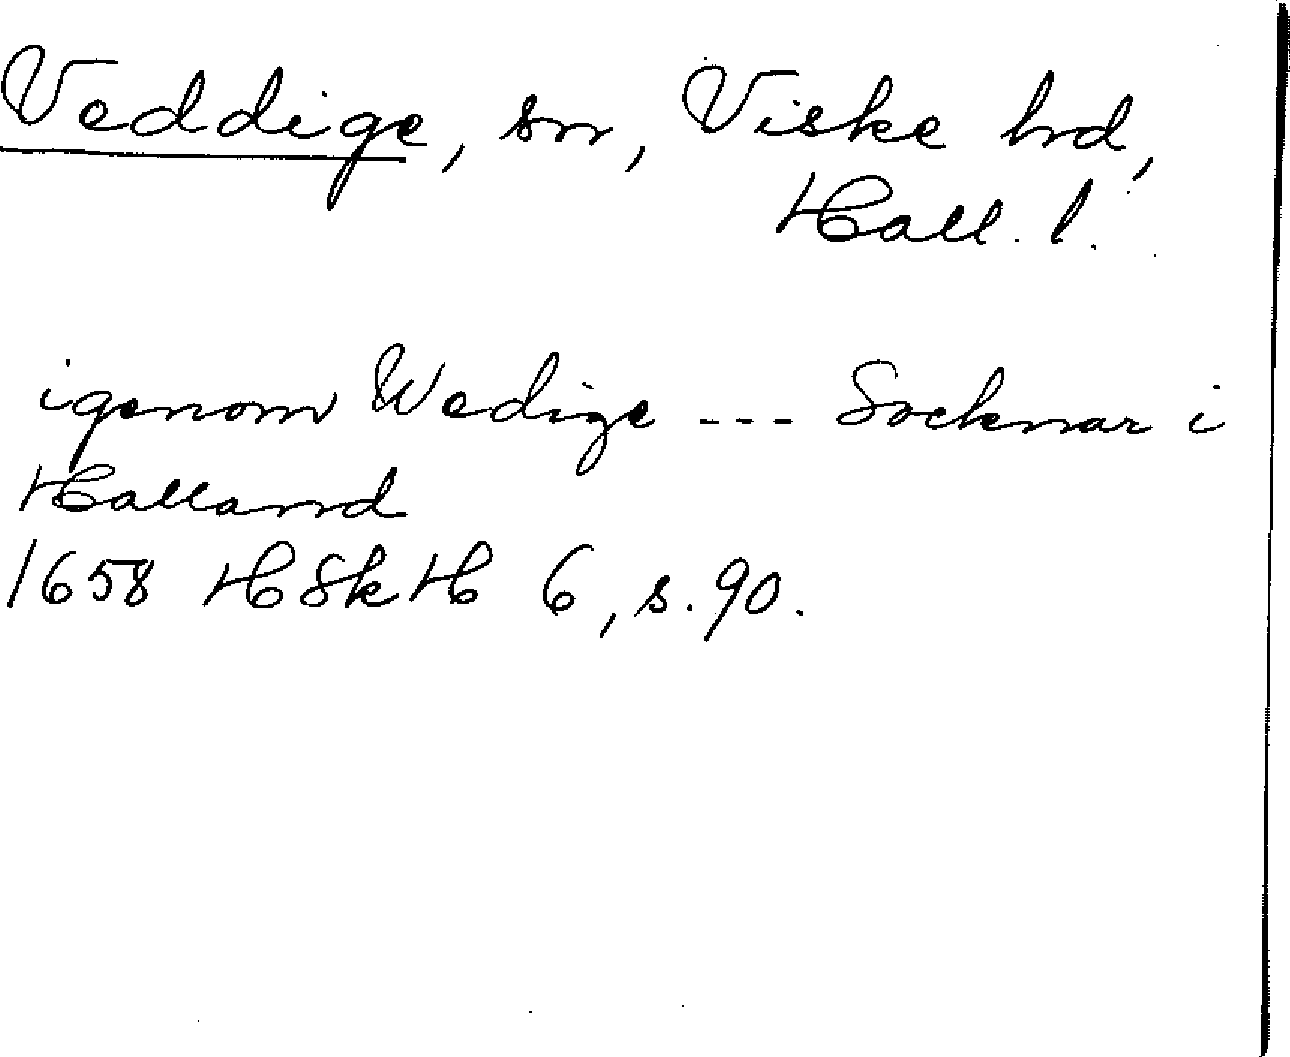 Veddige, sn, Viske hd,
Hall. l.
igenom Wedige --- Socknar i
Halland
1658 HSkH 6, s. 90.